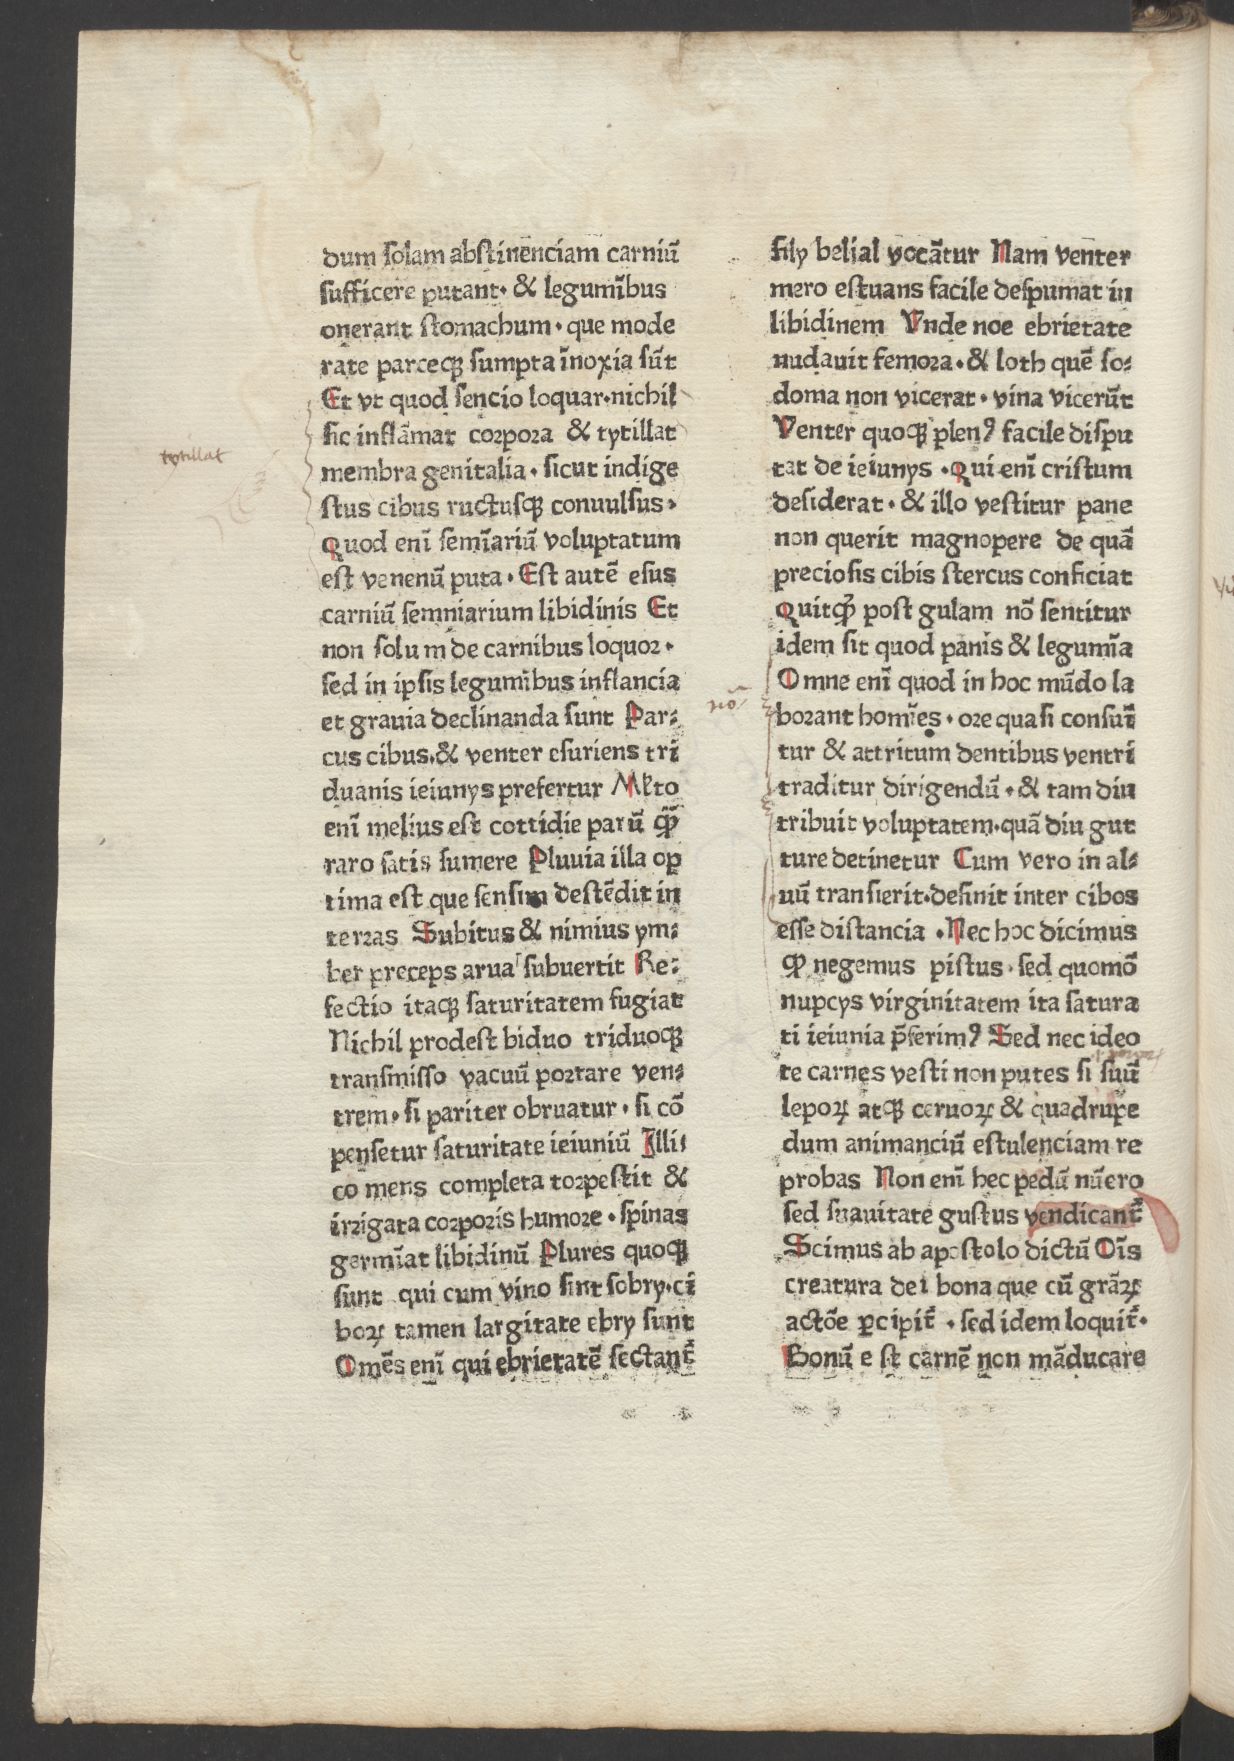 dum solam abstinenciam carniū
sufficere putant· & legumībus
onerant stomachum· que mode
rate parceqꝫ sumpta īnoxia sūt
Et vt quod sencio loquar·nichil
sic inflāmat corpora & tytillat
membra genitalia· sicut indige
stus cibus ructusqꝫ conuulsus·
Quod enī semīariū voluptatum
est venenū puta· Est autē esus
carniū semniarium libidinis Et
non solum de carnibus loquor·
sed in ipsis legumībus inflancia
et grauia declinanda sunt Par⸗
cus cibus·& venter esuriens tri
duanis ieiunys prefertur Mlto
enī melius est cottidie parū qꝫ̄
raro satis sumere Pluuia illa op
tima est que sensim destēdit in
terras Subitus & nimius ym⸗
ber preceps arua subuertit Re⸗
fectio itaqꝫ saturitatem fugiat
Nichil prodest biduo triduoqꝫ
transmisso vacuū portare ven⸗
trem· si pariter obruatur· si cō
pensetur saturitate ieiuniū Illi⸗
co mens completa torpestit &
irrigata corporis humore· spinas
germīat libidinū Plures quoqꝫ
sunt qui cum vino sint sobry·ci
boꝝ tamen largitate ebry sunt
Omēs enī qui ebrietatē sectant᷑
tytillat
fily belial vocātur Nam venter
mero estuans facile despumat in
libidinem Vnde noe ebrietate
nudauit femora·& loth quē so⸗
doma non vicerat· vina vicerūt
Venter quoqꝫ plenꝰ facile dispu
tat de ieiunys ·Qui enī cristum
desiderat· & illo vestitur pane
non querit magnopere de quā
preciosis cibis stercus conficiat
Quitqꝫ̄ post gulam nō sentitur
idem sit quod panis & legumīa
Omne enī quod in hoc mūdo la
borant homīes· ore quasi consuī
tur & attritum dentibus ventri
traditur dirigendū·& tam diu
tribuit voluptatem·quā diu gut
ture detinetur Cum vero in al⸗
uū transierit·desinit inter cibos
esse distancia ·Nec hoc dicimus
ꝙ negemus pistus· sed quomō
nupcys virginitatem ita satura
ti ieiunia p̄ferimꝰ Sed nec ideo
te carnes vesti non putes si suū
lepoꝝ atqꝫ ceruoꝝ & quadrupe
dum animanciū estulenciam re
probas Non enī hec pedū nūero
sed suauitate gustus vendicant᷑
Scimus ab apostolo dictū Oīs
creatura dei bona que cū grāꝝ
actōe ꝑcipit᷑ ·sed idem loquit᷑·
Bonū est carnē non māducare
nō